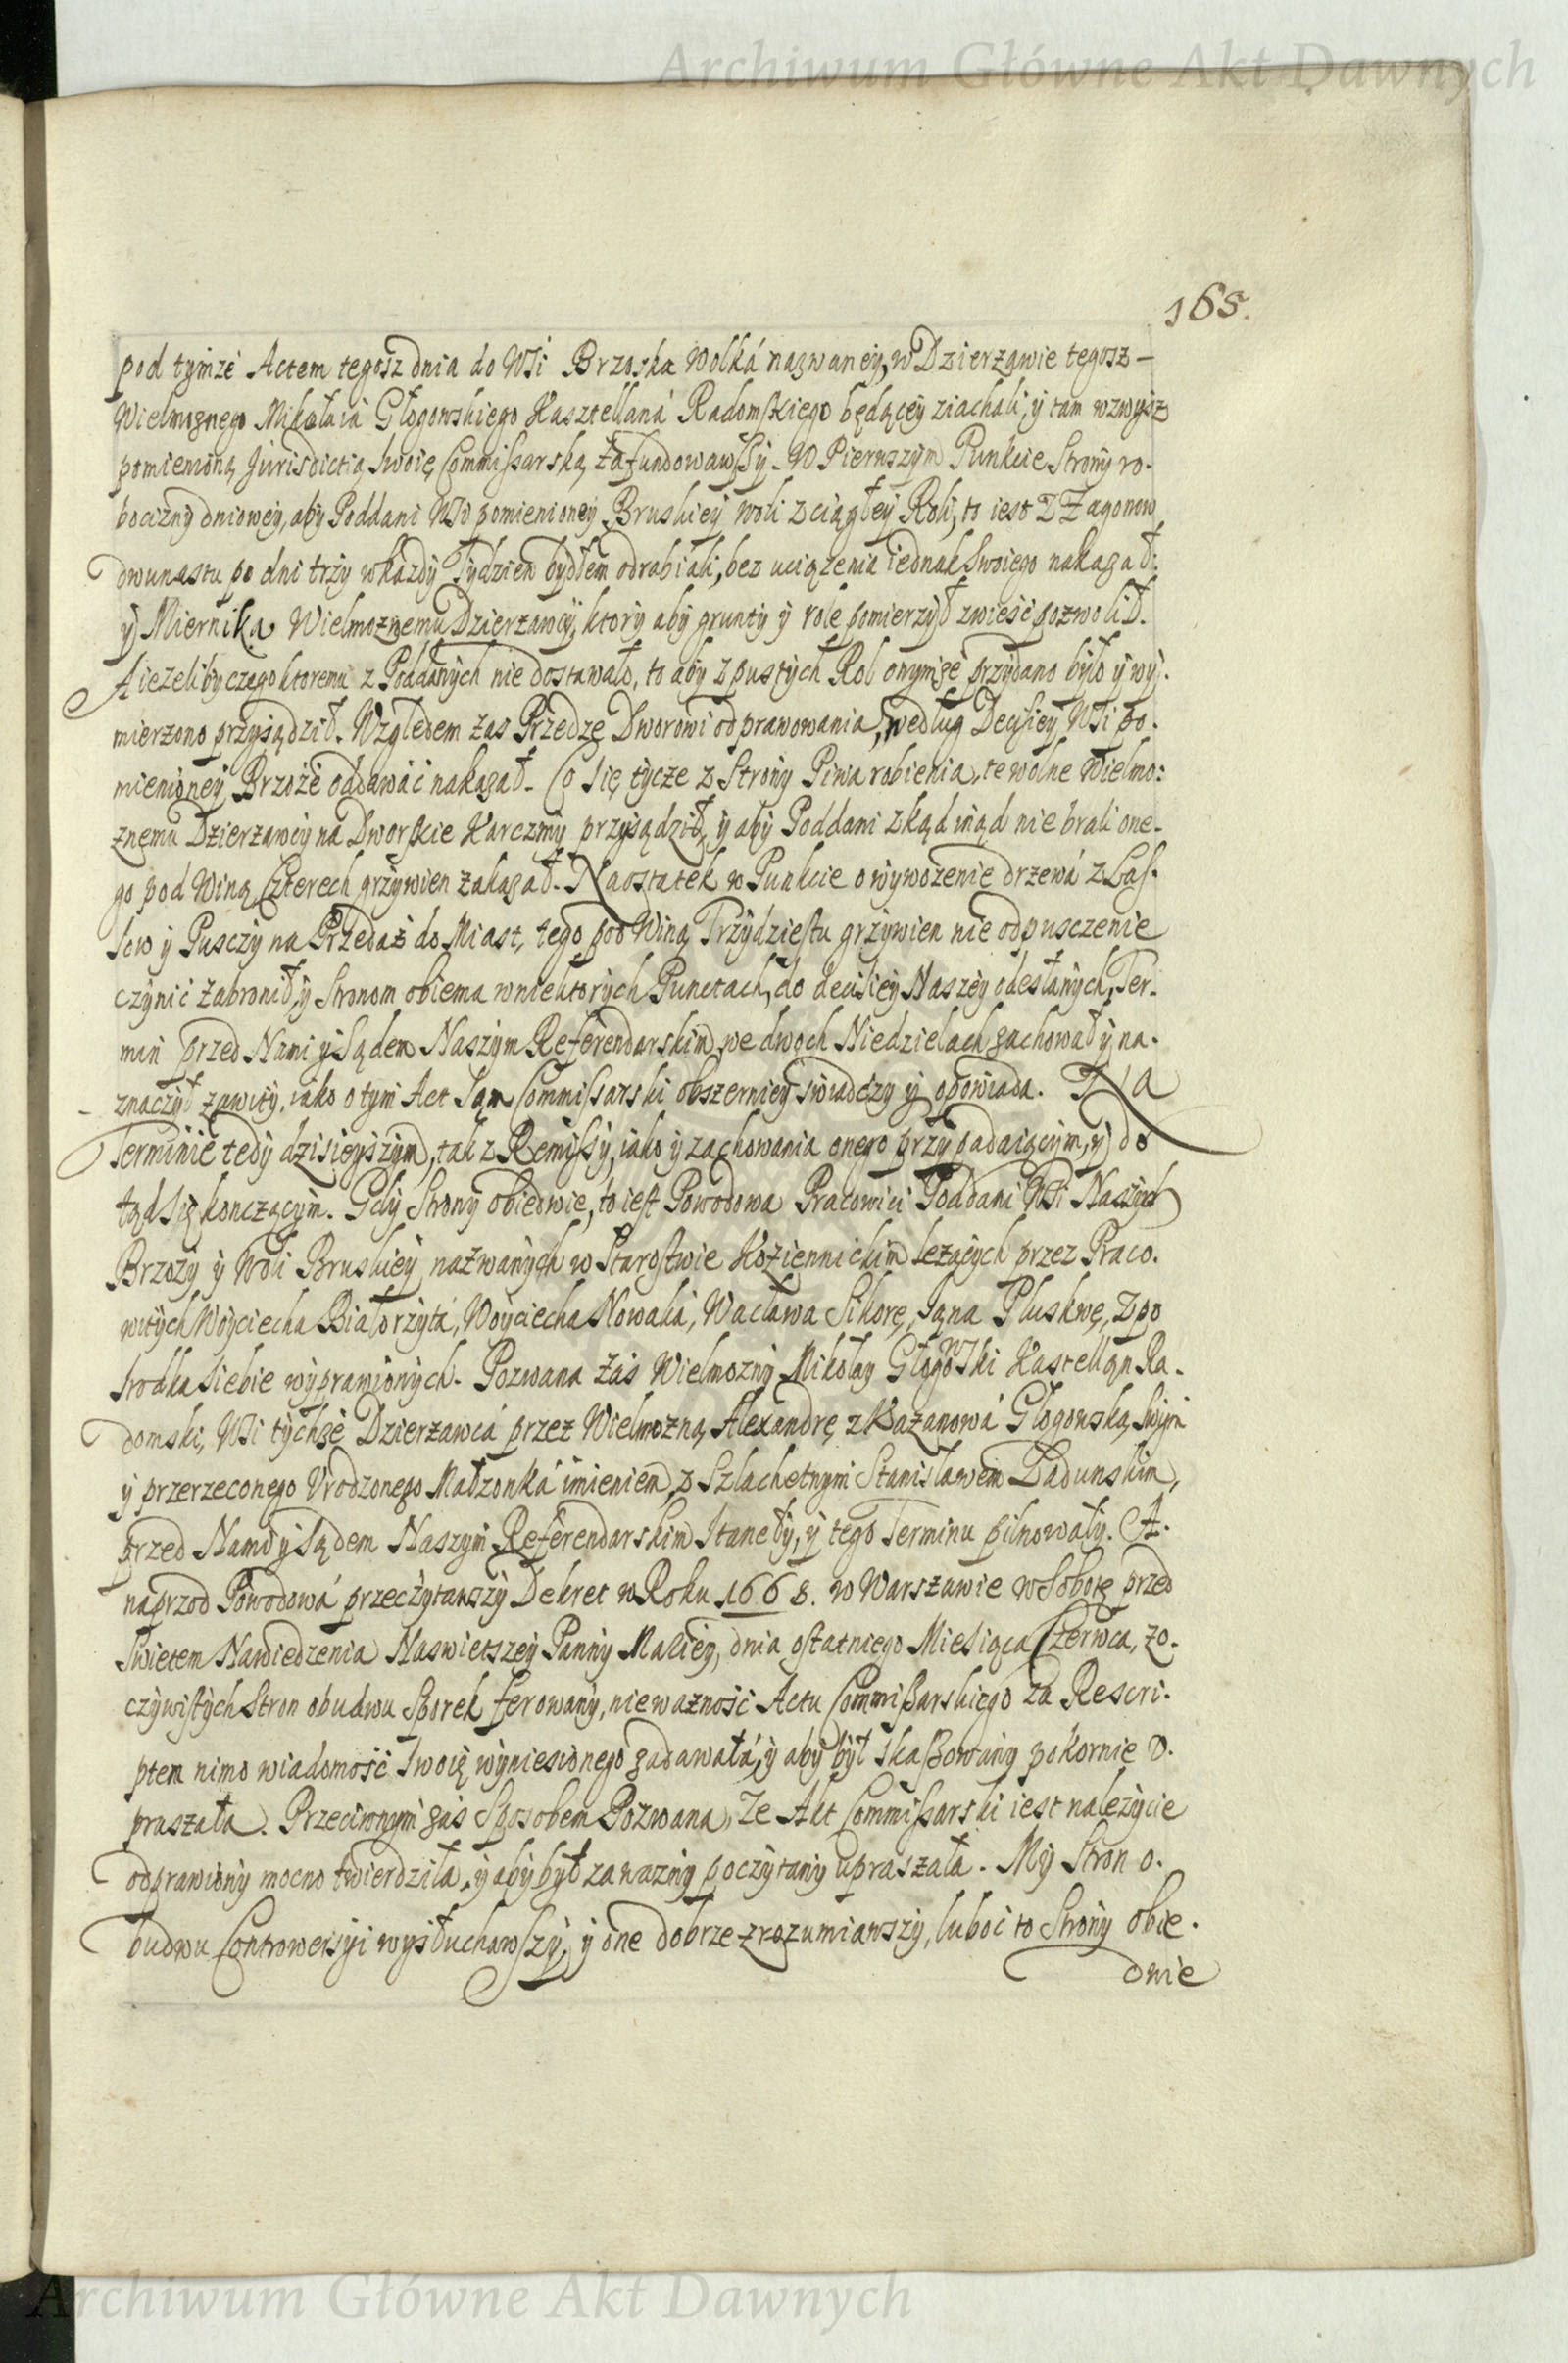 Archiwum Główne Akt Dawnych
165.
pod tymże Actem tegosz dnia do Wsi Brzoska Wolká nazwaney, w Dzierzawie tegosz –
Wielmoznego Mikołaiá Głogowskiego Kasztellaná Radomskiego będącey ziachali, y tam wzwysz
pomienioną Jurisdictią swoię Commissarską zafundowawszy. W Pierwszym Punkcie Strony ro-
bocizny dniowey, aby Poddani Wsi pomienioney Bruskiey Woli z ciągłey Roli, to iest z Zagonow
dwunastu po dni trzy w kazdy Tydzien bydłem odrabiali, bez uciązenia iednak swoiego nakazał:
y Miernika Wielmoznemu Dzierzawcy, ktory aby grunty y role pomierzył zwieść pozwolił.
A iezeliby czego ktoremu z Poddanych nie dostawało, to aby z pustych Rol onymze przydano było y wy-
mierzono przysądził. Względem zas Przedze Dworowi odprawowania, według Decisiey Wsi po-
mienioney Brzoże oddawać nakazał. Co się tycze z Strony Piwa robienia, te wolne Wielmo:
znemu Dzierzawcy na Dworskie Karczmy przysądził, y aby Poddani zkąd inąd nie brali one-
go pod Winą Czterech grzywien zakazał. Naostatek w Punkcie o wywożenie drzewá z Las-
sow y Pusczy na Przedaż do Miast, tego pod Winą Trzydziestu grzywien nie odpusczenie
czynić zabronił, y Stronom obiema w niektorych Punctach, do decisiey Naszey odesłanych, Ter-
min przed Nami y Sądem Naszym Referendarskim we dwoch Niedzielach zachował y na-
znaczył zawity, iako o tym Act Sam Commissarski obszerniey swiadczy y opowiada. Na
Terminie tedy dzisieyszym, tak z Remissy, iako y zachowania onego przypadaiącym, y do
tąd się konczącym. Gdy Strony obiedwie, to iest Powodowa Pracowici Poddani Wsi Naszych
Brzozy y Woli Bruskiey nazwanych w Starostwie Kozienickim lezących przez Praco-
witych Woyciecha Białorzytá, Woyciecha Nowaká, Wacława Sikorę, Jana Pluskwę, z po
srodka siebie wyprawionych. Pozwana zás Wielmozny Mikołay Głogowski Kastellan Ra-
domski, Wsi tychże Dzierzawcá przez Wielmozną Alexandrę z Kazanowá Głogowską, swym
y przerzeconego Vrodzonego Małzonká imieniem, z Szlachetnym Stanisławem Ladunskim,
przed Nami y Sądem Naszym Referendarskim Staneły, y tego Terminu pilnowały. A.
naprzod Powodowá przeczytawszy Dekret w Roku 1668. w Warszawie w Sobotę przed
Swiętem Nawiedzenia Naswietszey Panny Mariey, dnia ostatniego Miesiąca Czerwca, z o-
czywistych Stron obudwu Sporek ferowany, nieważność Actu Commissarskiego za Rescri-
ptem nimo wiadomość swoię wyniesionego zadawałá, y aby był skassowany pokornie v-
praszała. Przeciwnym zás Sposobem Pozwana, Ze Akt Commissarski iest należycie
odprawiony mocno twierdziła, y aby był za ważny poczytany upraszała. My Stron o-
budwu Controwersyi wysłuchawszy, y one dobrze zrozumiawszy, luboć to Strony obie-
dwie
Archiwum Główne Akt Dawnych